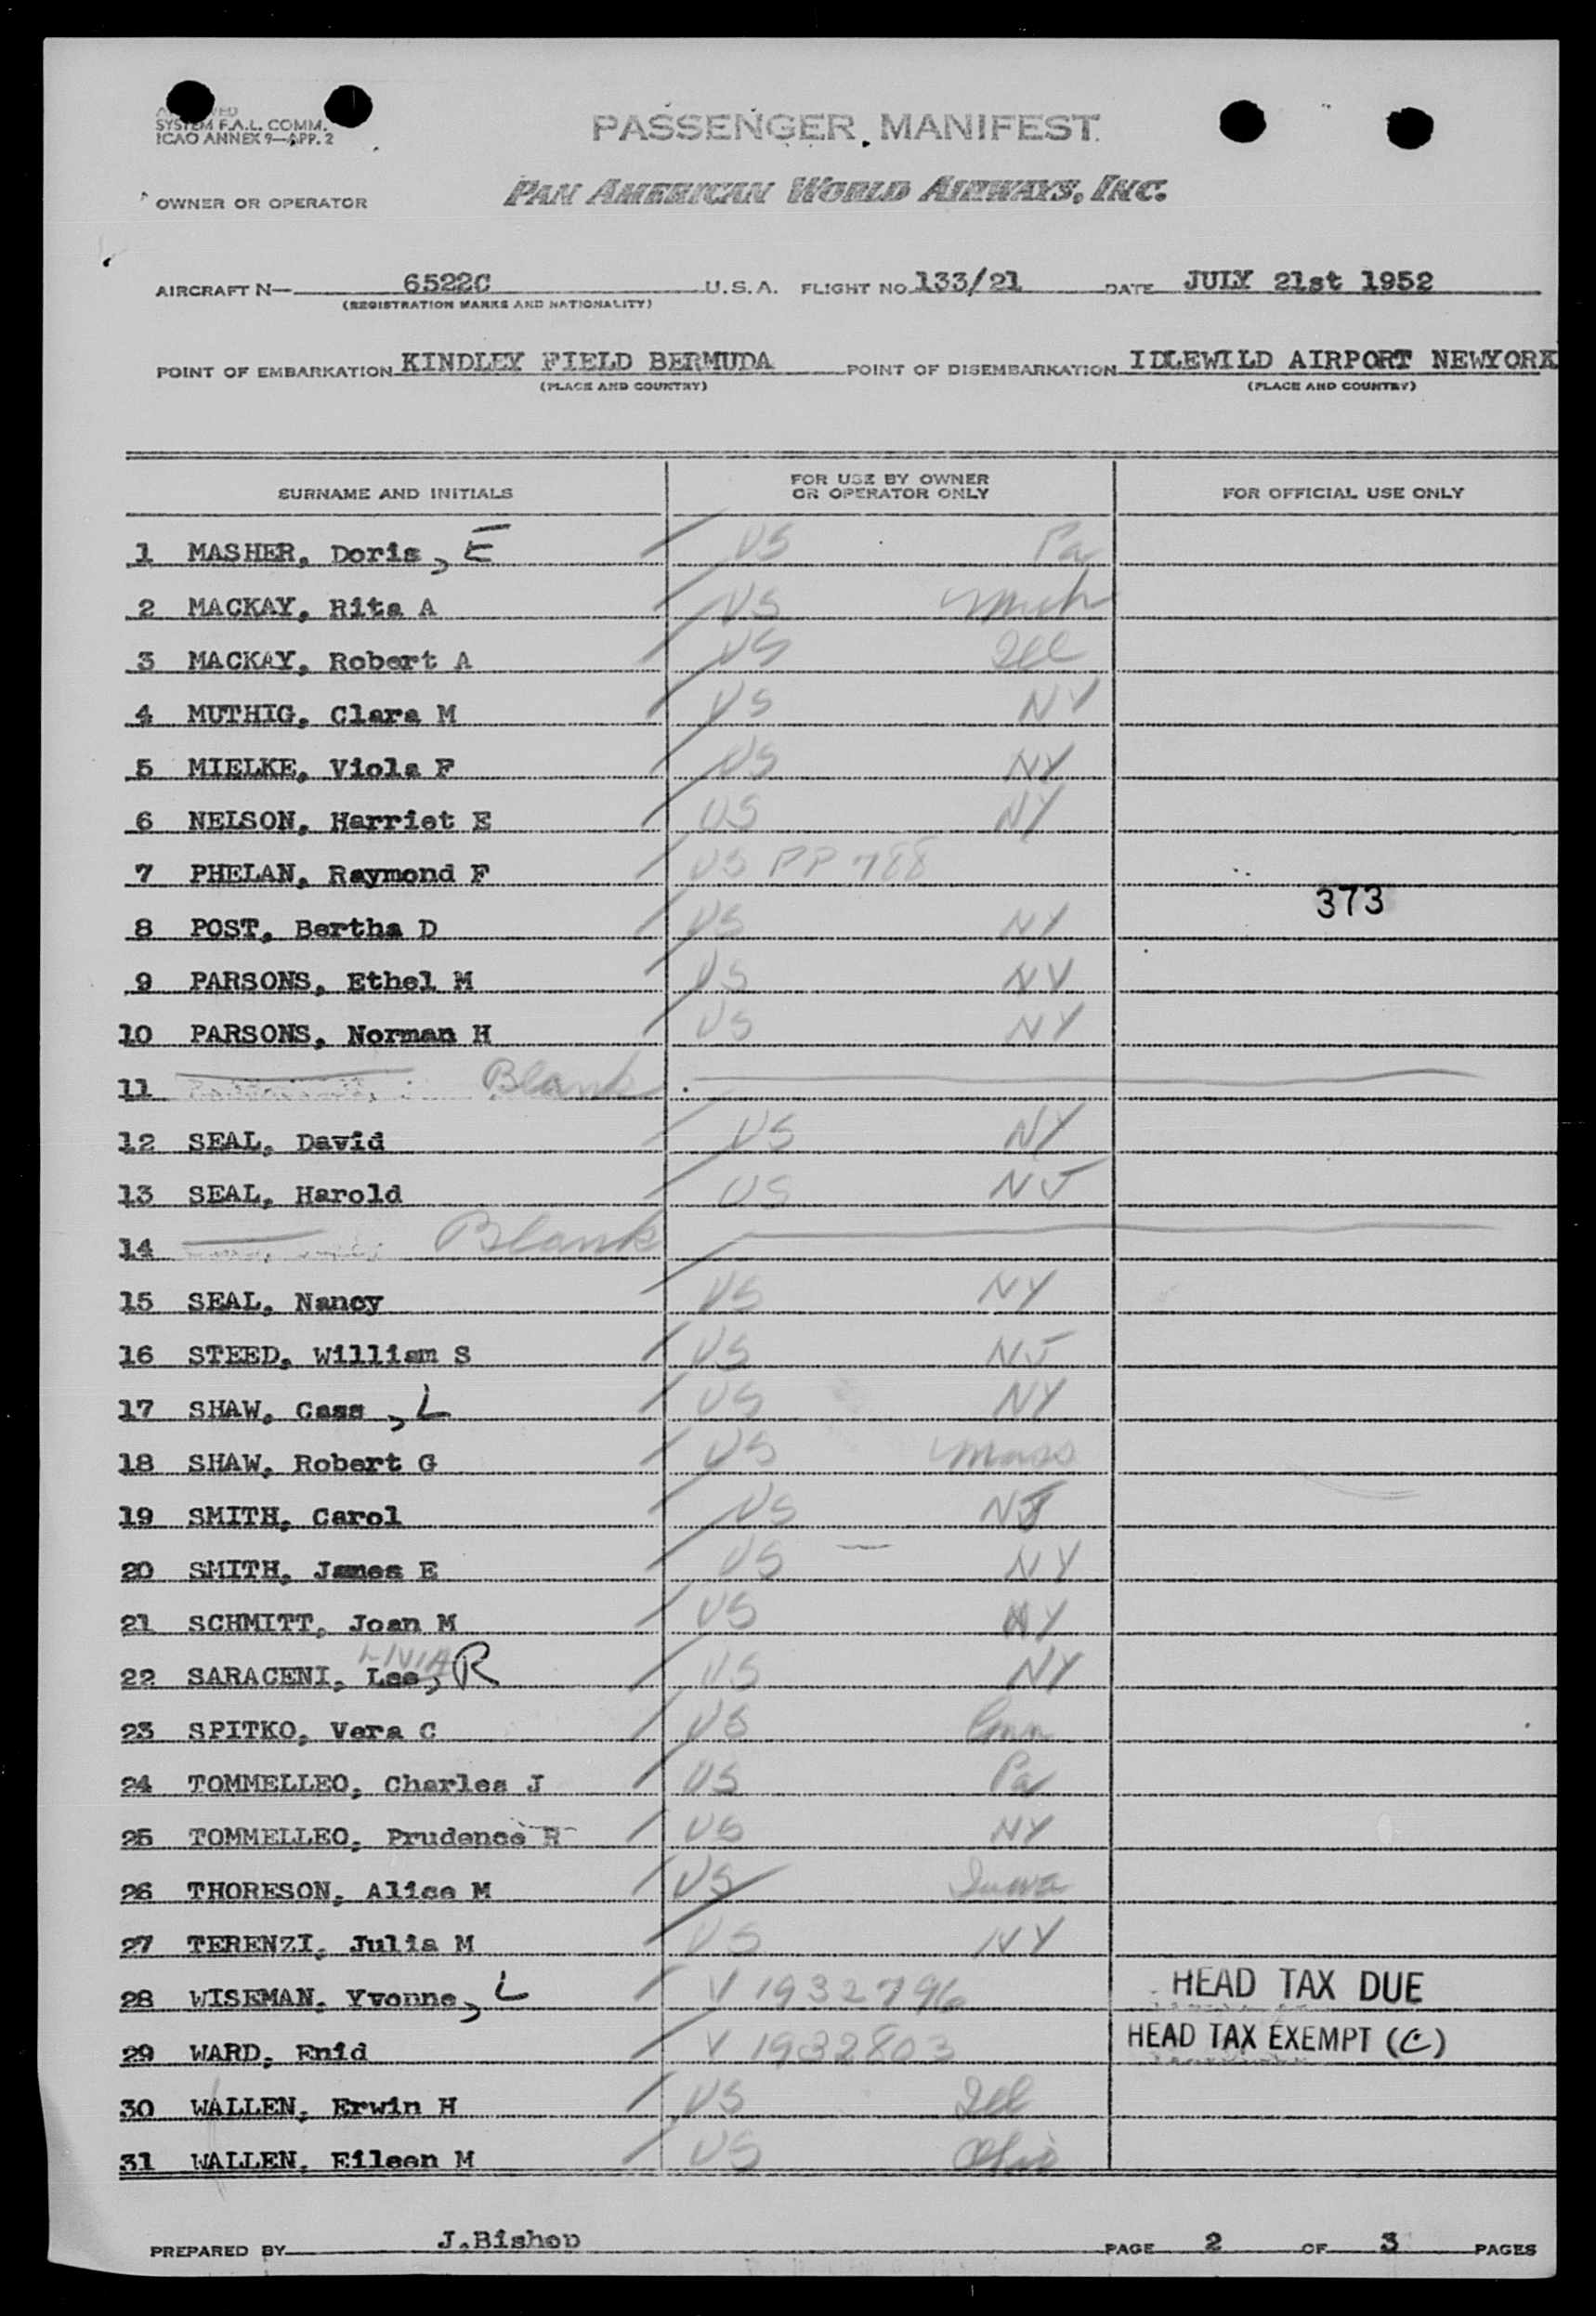 SYSTEM F.A.L. COMM.
ICAO ANNEX 9—APP. 2
PASSENGER MANIFEST
OWNER OR OPERATOR PAN AMERICAN WORLD AIRWAYS, INC.
AIRCRAFT N— 6522C U.S.A. FLIGHT NO. 133/21 DATE JULY 21st 1952
(REGISTRATION MARKS AND NATIONALITY)
POINT OF EMBARKATION KINDLEY FIELD BERMUDA POINT OF DISEMBARKATION IDLEWILD AIRPORT NEWYORK
(PLACE AND COUNTRY) (PLACE AND COUNTRY)
SURNAME AND INITIALS FOR USE BY OWNER OR OPERATOR ONLY FOR OFFICIAL USE ONLY
1 MASHER, Doris, E US Pa
2 MACKAY, Rita A US Mich
3 MACKAY, Robert A US Ill
4 MUTHIG, Clara M US NY
5 MIELKE, Viola F US NY
6 NELSON, Harriet E US NY
7 PHELAN, Raymond F US PP 788
373
8 POST, Bertha D US NY
9 PARSONS, Ethel M US NY
10 PARSONS, Norman H US NY
11 Blank
12 SEAL, David US NY
13 SEAL, Harold US NJ
14 Blank
15 SEAL, Nancy US NY
16 STEED, William S US NJ
17 SHAW, Cass, L US NY
18 SHAW, Robert G US Mass
19 SMITH, Carol US NJ
20 SMITH, James E US NY
21 SCHMITT, Joan M US NY
LIVIA
22 SARACENI, Lee, R US NY
23 SPITKO, Vera C US Conn
24 TOMMELLEO, Charles J US Pa
25 TOMMELLEO, Prudence R US NY
26 THORESON, Alice M US Iowa
27 TERENZI, Julia M US NY
28 WISEMAN, Yvonne, L V 1932796 HEAD TAX DUE
29 WARD, Enid V 1932803 HEAD TAX EXEMPT (C)
30 WALLEN, Erwin H US Ill
31 WALLEN, Eileen M US Ohio
PREPARED BY J.Bishop PAGE 2 OF 3 PAGES